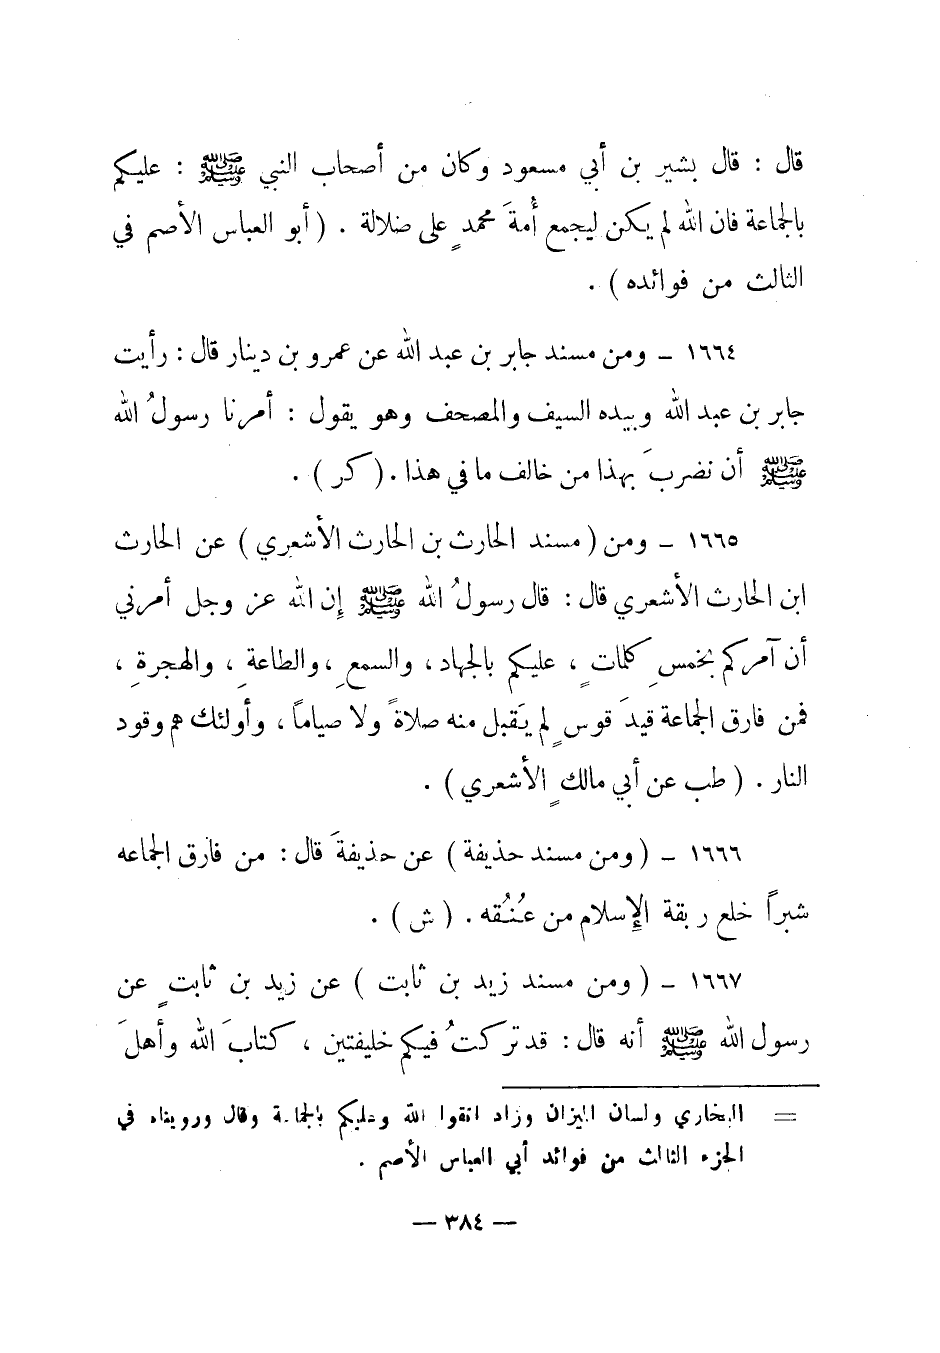 قال : قال بشير بن أبي مسعود وكان من أصحاب النبي ﷺ : عليكم
بالجماعة فان الله لم يكن ليجمع أُمةَ محمدٍ على ضلالة . ( أبو العباس الأصم في
الثالث من فوائده ) .
١٦٦٤ ــ ومن مسند جابر بن عبد الله عن عمرو بن دينار قال : رأيت
جابر بن عبد الله وبيده السيف والمصحف وهو يقول : أمرنا رسولُ الله
ﷺ أن نضربَ بهذا من خالف ما في هذا . ( كر ) .
١٦٦٥ ــ ومن ( مسند الحارث بن الحارث الأشعري ) عن الحارث
ابن الحارث الأشعري قال : قال رسولُ الله ﷺ إن الله عز وجل أمرني
أن آمركم بخمسِ كلماتٍ ، عليكم بالجهاد ، والسمعِ ، والطاعةِ ، والهجرةِ ،
فمن فارق الجماعة قيدَ قوسٍ لم يَقبل منه صلاةً ولا صياماً ، وأولئك هم وقود
النار . ( طب عن أبي مالكٍ الأشعري ) .
١٦٦٦ ــ ( ومن مسند حذيفة ) عن حذيفةَ قال : من فارق الجماعه
شبراً خلع ربقة الإسلام من عُنُقه . ( ش ) .
١٦٦٧ ــ ( ومن مسند زيد بن ثابت ) عن زيد بن ثابتٍ عن
رسول الله ﷺ أنه قال : قد تركتُ فيكم خليفتين ، كتابَ الله وأهلَ
= البخاري ولسان الميزان وزاد اتقوا الله وعليكم بالجماعة وقال ورويناه في
الجزء الثالث من فوائد أبي العباس الأصم .
— ٣٨٤ —